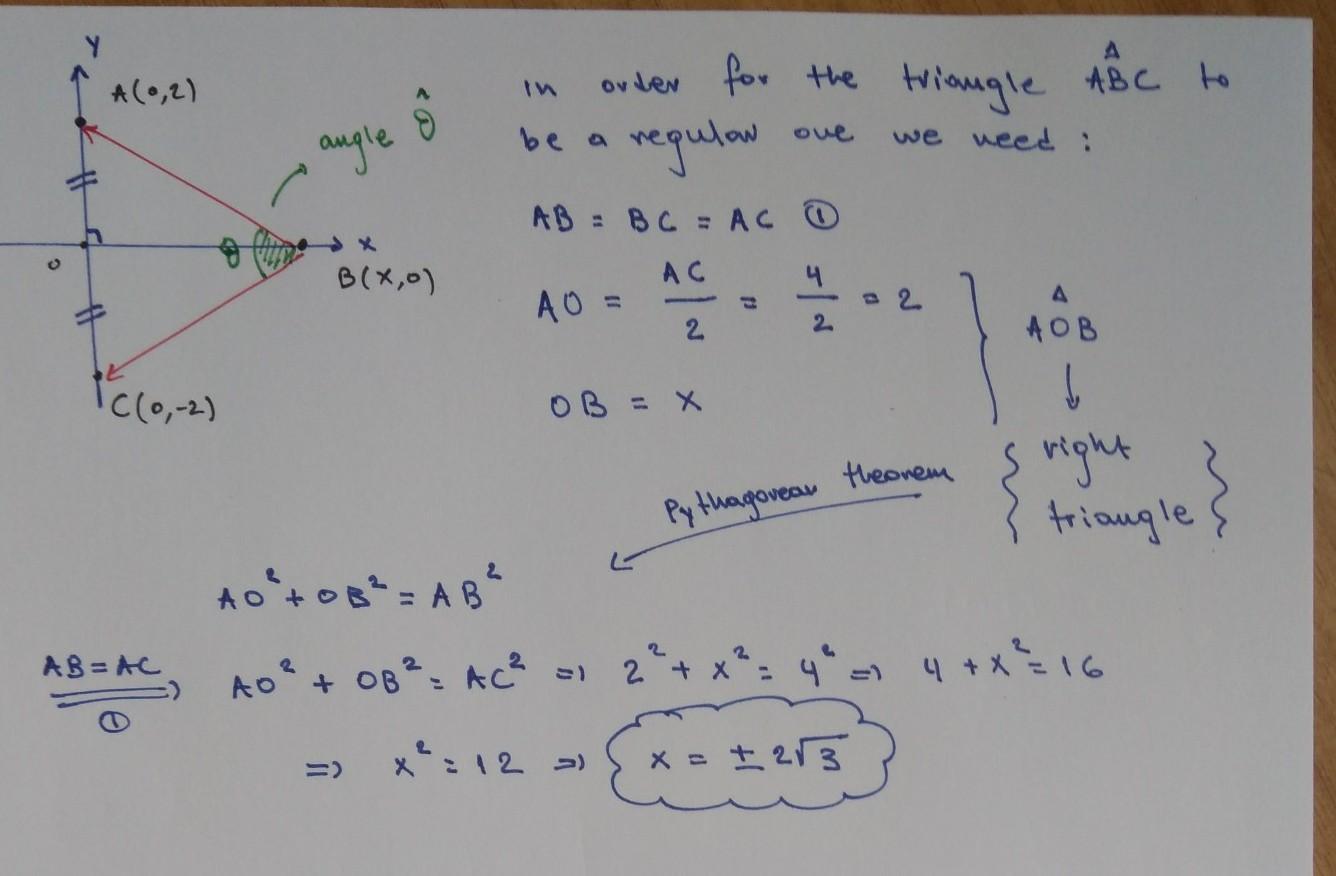 Y
A(0,2)
angle θ̂
θ
x
0
B(x,0)
C(0,-2)
in order for the triangle AB̂C to
be a regular one we need :
AB = BC = AC ①
AO = AC/2 = 4/2 = 2
OB = x
AÔB
↓
{ right
triangle }
Pythagorean theorem
AO² + OB² = AB²
AB = AC ⇒ ① AO² + OB² = AC² ⇒ 2² + x² = 4² ⇒ 4 + x² = 16
⇒ x² = 12 ⇒ x = ± 2√3